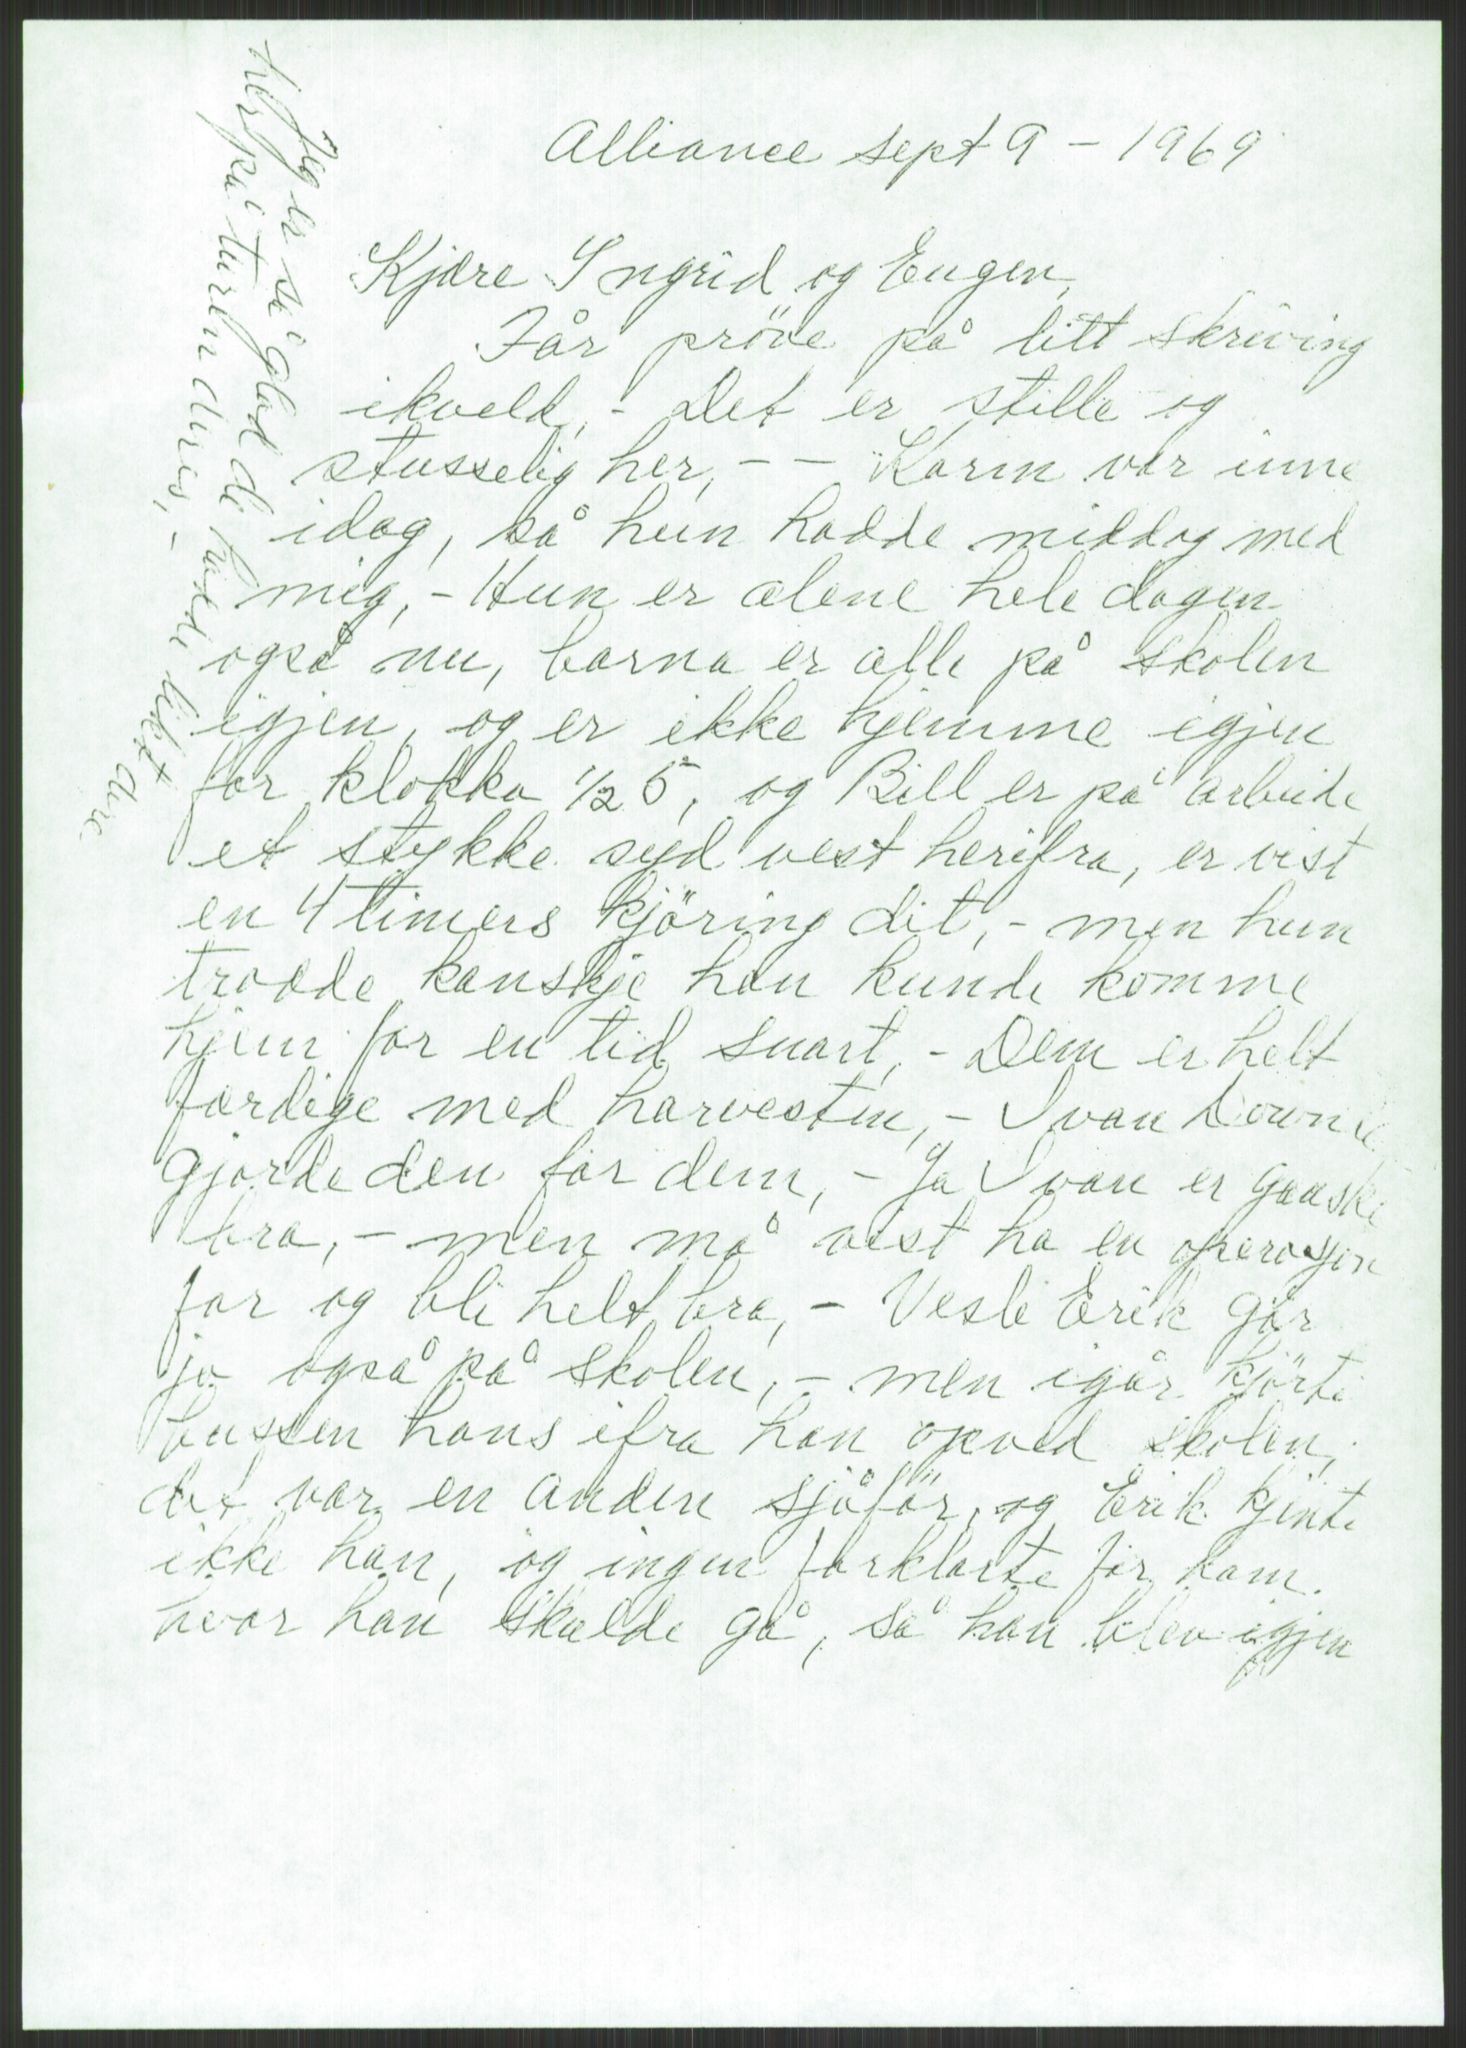 Alliance sept 9 - 1969
Kjære Ingrid og Eugen,
Får pröve på litt skriving
ikveld, - Det er stille og
stusselig her, - - Karin var inne
idag, så hun hadde middag med
mig, - Hun er alene hele dagen
også nu, barna er alle på skolen
igjen, og er ikke hjemme igjen
før klokka ½ 5, og Bill er på arbeide
et stykke syd vest herifra, er vist
en 4 timers kjöring dit, - men hun
trodde kanskje han kunde komme
hjem for en tid snart, - Dem er helt
færdige med harvesten, - Ivan
gjorde den for dem, - Ja Ivan er ganske
bra, - men må vist ha en operasjon
for og bli helt bra, - Vesle Erik går
jo også på skolen, - men igår kjörte
bussen hans ifra han opved skolen,
det var en anden sjåför, og Erik kjente
ikke han, og ingen forklarte for ham
hvor han skulde gå, så han blev igjen
Jeg er så glad de hadde likt dere
her på turen deres, -